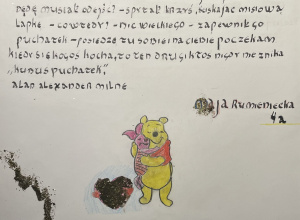 będę musiał odejść? - spytał Krzyś, ściskając misiową
łapkę. - co wtedy? - nic wielkiego. - zapewnił go
puchatek. - posiedzę tu sobie i na ciebie poczekam.
kiedy się kogoś kocha, to ten drugi ktoś nigdy nie znika
„kubuś puchatek,"
alan alexander milne
Maja Rumieniecka
4a